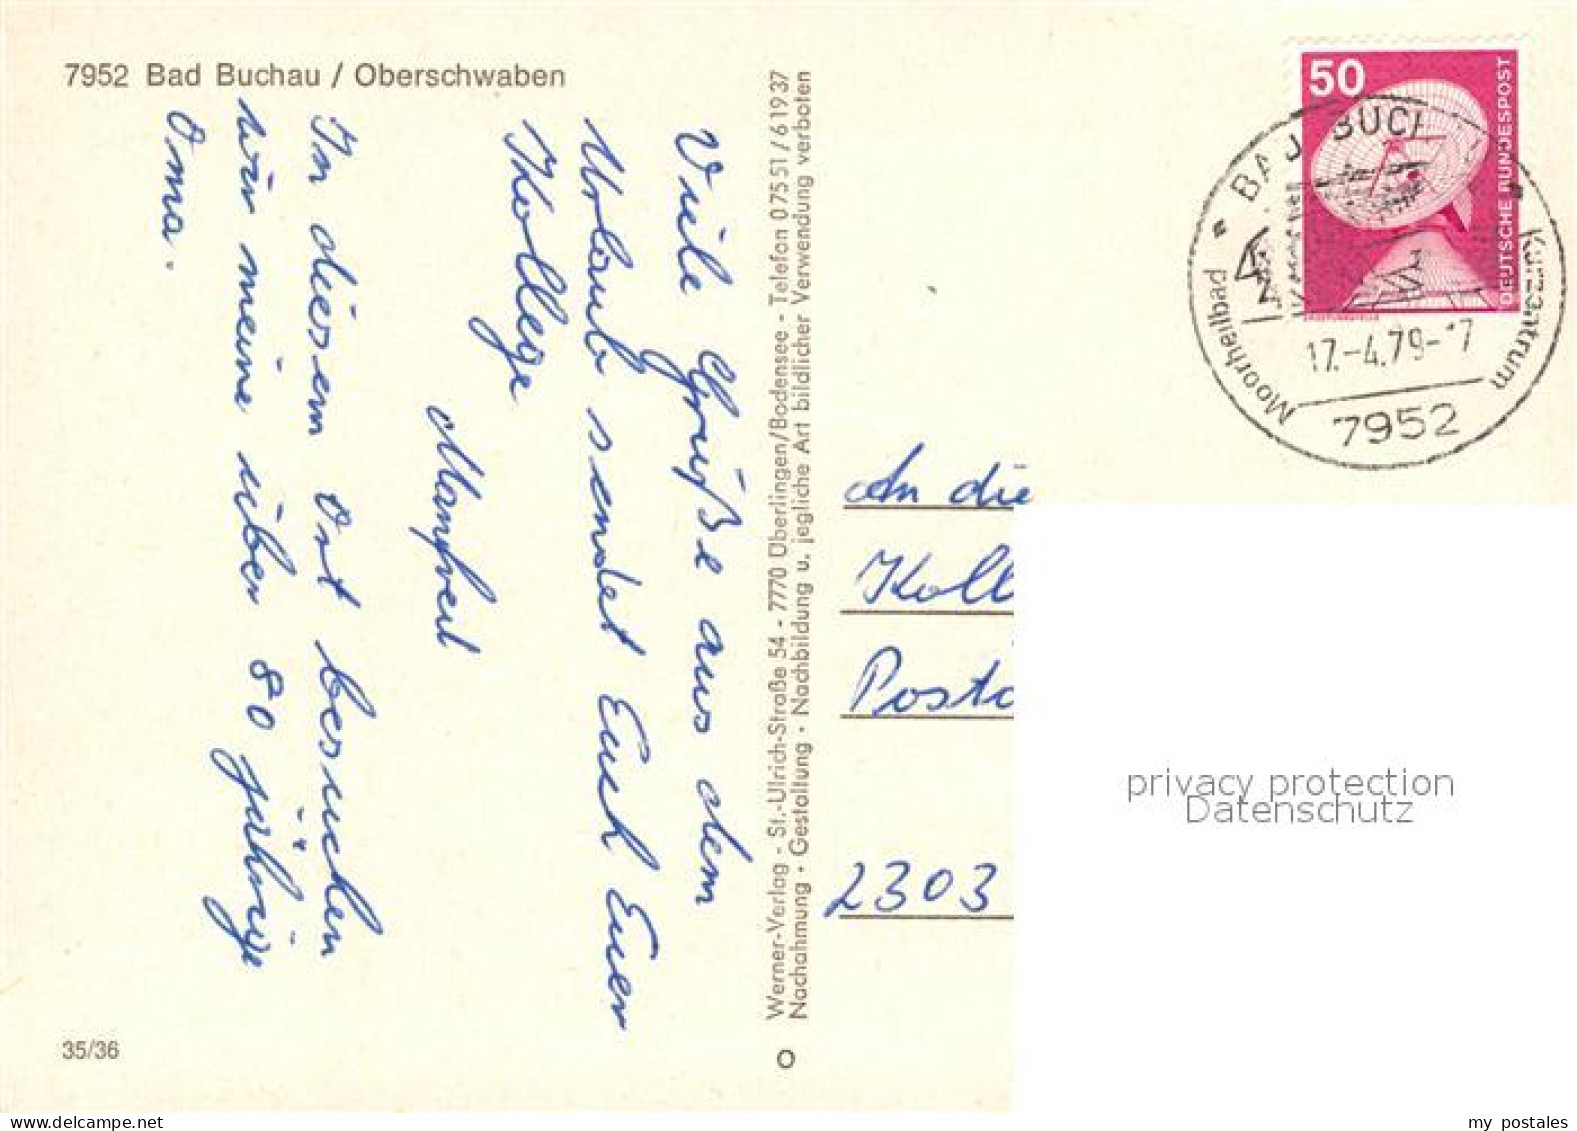 7952 Bad Buchau / Oberschwaben
Viele Grüße aus dem
Urlaub sendet Euch Euer
Kollege
Manfred
In diesem Ort besuchen
wir meine über 80 jährige
Oma.
35/36
Werner-Verlag - St.-Ulrich-Straße 54 - 7770 Überlingen/Bodensee - Telefon 07551/61937
Nachahmung • Gestaltung • Nachbildung u. jegliche Art bildlicher Verwendung verboten
50
DEUTSCHE BUNDESPOST
BAD BUCH
Moorheilbad
Kurzentrum
17.-4.79-17
7952
An die
Koll
Posta
2303
privacy protection
Datenschutz
my postales